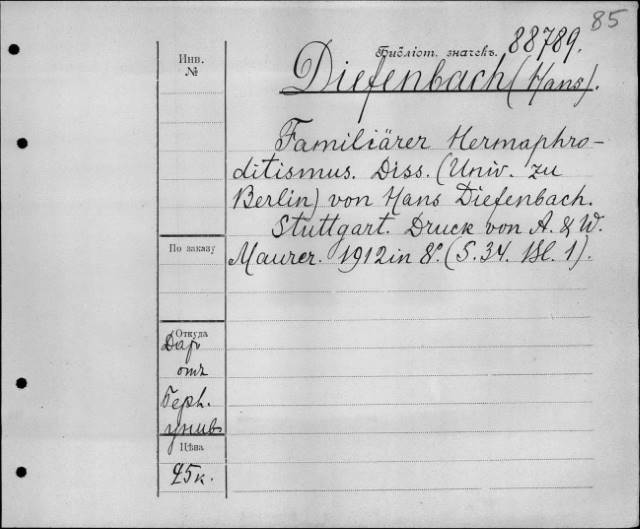 85
Библіот. значекъ. 88789.
Инв.
№
Diefenbach (Hans).
Familiärer Hermaphro-
ditismus. Diss. (Univ. zu
Berlin) von Hans Diefenbach.
Stuttgart. Druck von A. & W.
Maurer. 1912 in 8º. (S. 34. Bl. 1).
По заказу
Откуда
Даръ
отъ
Берл.
унив.
Цѣна
25к.